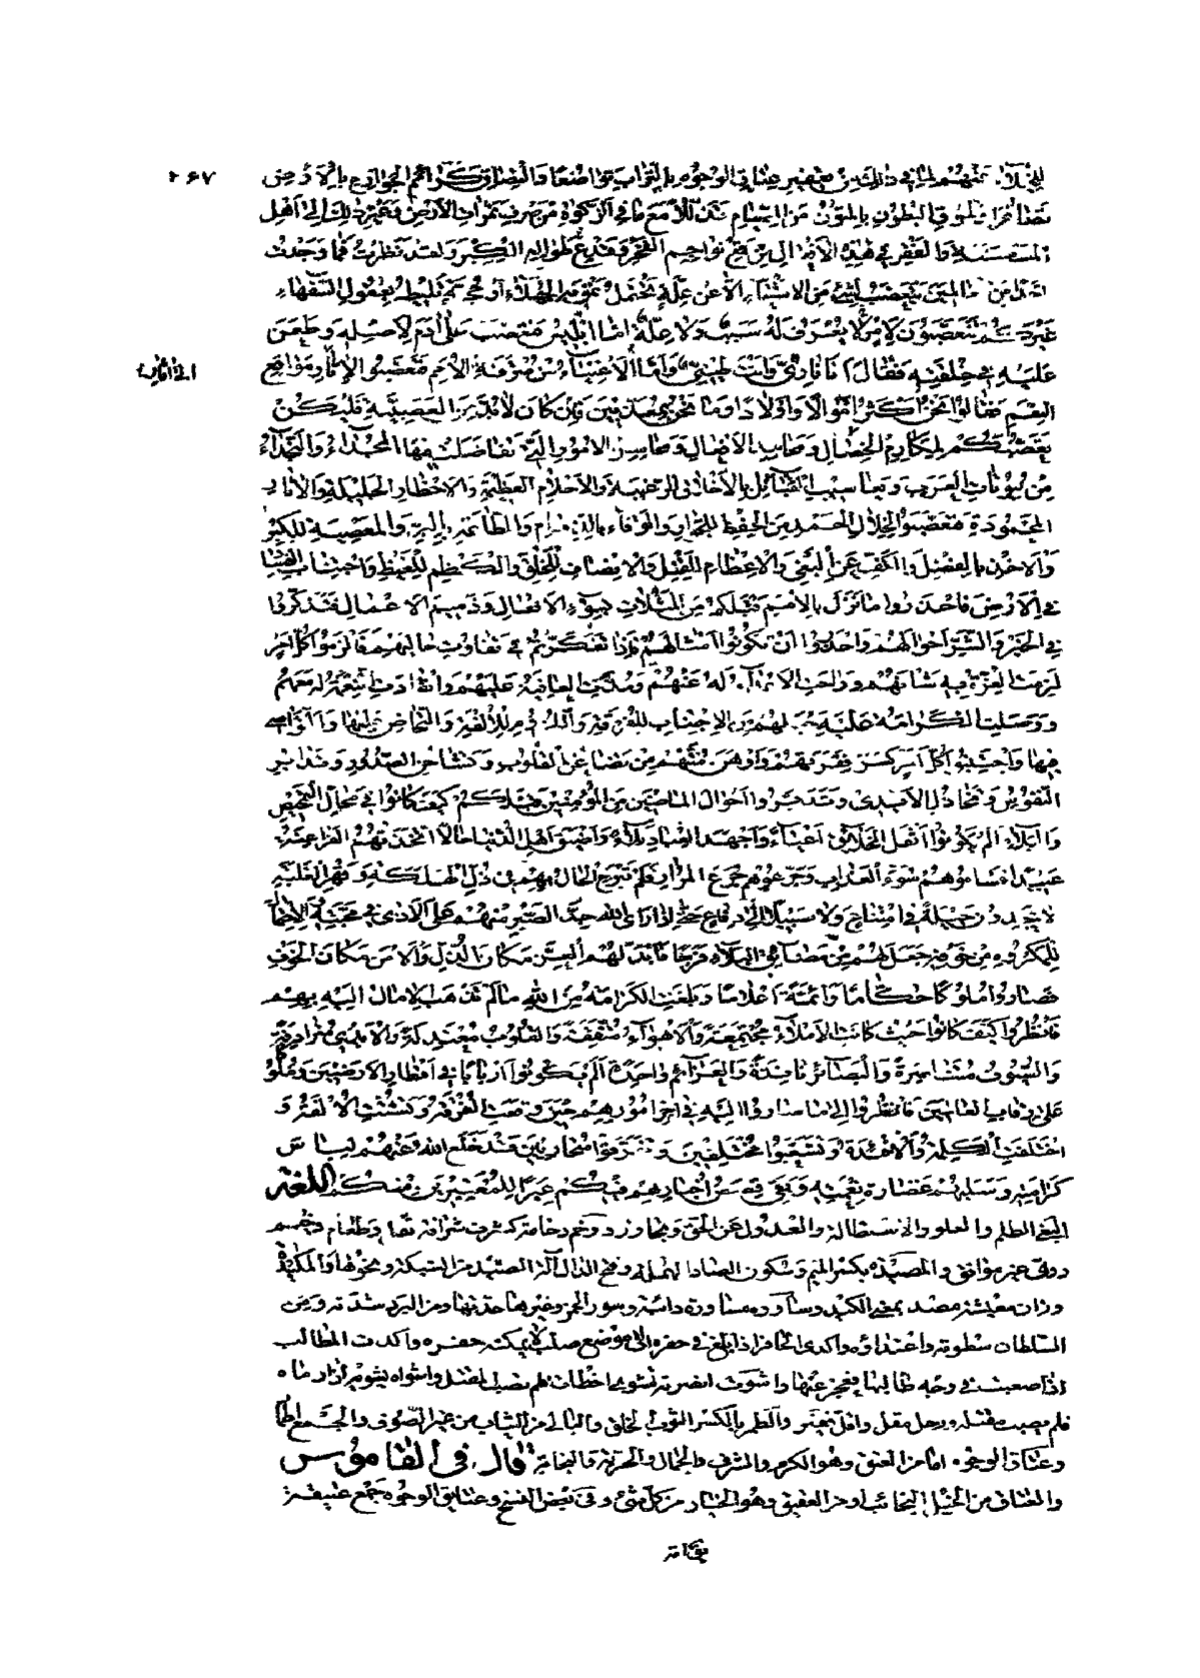 للخيلاء عنهم لما في ذلك من تعفير عتاق الوجوه بالتراب تواضعا والتصاق كرائم الجوارح بالأرض ٢٦٧
تصاغرا ولحوق البطون بالمتون من الصيام تذللا مع ما في الزكوة من صرف ثمرات الأرض وغير ذلك إلى أهل
المسكنة والفقر في هذه الأفعال من قمع نواجم الفخر وقدع طوالع الكبر ولقد نظرت فما وجدت
أحدا من العالمين يتعصب لشيء من الأشياء إلا عن علة تحتمل تمويه الجهلاء أو حجة تليط بعقول السفهاء
غيركم فإنكم تتعصبون لأمر لا يعرف له سبب ولا علة أما ابليس فتعصب على آدم لأصله وطعن
عليه في خلقته فقال أنا ناري وأنت طيني وأما الأغنياء من مترفة الأمم فتعصبوا لآثار مواقع
النعم فقالوا نحن أكثر أموالا وأولادا وما نحن بمعذبين فإن كان لا بد من العصبية فليكن
تعصبكم لمكارم الخصال ومحامد الأفعال ومحاسن الأمور التي تفاضلت فيها المجداء والنجداء
من بيوتات العرب ويعاسيب القبائل بالأخلاق الرغيبة والأحلام العظيمة والأخطار الجليلة والآثار
المحمودة فتعصبوا لخلال الحمد من الحفظ للجوار والوفاء بالذمام والطاعة للبر والمعصية للكبر
والأخذ بالفضل والكف عن البغي والإعظام للقتل والإنصاف للخلق والكظم للغيظ واجتناب الفساد
في الأرض فاحذروا ما نزل بالأمم قبلكم من المثلات بسوء الأفعال وذميم الأعمال فتذكروا
في الخير والشر أحوالهم واحذروا أن تكونوا أمثالهم فإذا تفكرتم في تفاوت حاليهم فالزموا كل أمر
لزمت العزة به شأنهم وزاحت الأعداء له عنهم ومدت العافية عليهم وانقادت النعمة له معهم
ووصلت الكرامة عليه حبلهم من الاجتناب للفرقة واللزوم للألفة والتحاض عليها والتواصي
بها واجتنبوا كل أمر كسر فقرتهم وأوهن منتهم من تضاغن القلوب وتشاحن الصدور وتدابر
النفوس وتخاذل الأيدي وتدبروا أحوال الماضين من المؤمنين قبلكم كيف كانوا في حال التمحيص
والبلاء ألم يكونوا أثقل الخلائق أعباء وأجهد العباد بلاء وأضيق أهل الدنيا حالا اتخذتهم الفراعنة
عبيدا فساموهم سوء العذاب وجرعوهم جرع المرار فلم تبرح الحال بهم في ذل الهلكة وقهر الغلبة
لا يجدون حيلة في امتناع ولا سبيلا إلى دفاع حتى إذا رأى الله جد الصبر منهم على الأذى في محبته والاحتمال
للمكروه من خوفه جعل لهم من مضائق البلاء فرجا فأبدلهم العز مكان الذل والأمن مكان الخوف
فصاروا ملوكا حكاما وأئمة أعلاما وبلغت الكرامة من الله ما لم تذهب الآمال إليه بهم
فانظروا كيف كانوا حيث كانت الأملاء مجتمعة والأهواء متفقة والقلوب معتدلة والأيدي مترادفة
والسيوف متناصرة والبصائر نافذة والعزائم واحدة ألم يكونوا أربابا في أقطار الأرضين وملوكا
على رقاب العالمين فانظروا إلى ما صاروا إليه في آخر أمورهم حين وقعت الفرقة وتشتتت الألفة و
اختلفت الكلمة والأفئدة وتشعبوا مختلفين وتفرقوا متحاربين قد خلع الله عنهم لباس
كرامته وسلبهم غضارة نعمته وبقي قصص أخبارهم فيكم عبرا للمعتبرين منكم اللغة
البغي الظلم والعلو والاستطالة والعدول عن الحق وتجاوز الحد وخم وخامة وطعام وخيم
غير موافق والمصيدة بكسر الميم وسكون الصاد المهملة وفتح الياء آلة الصيد من الشبكة ونحوها والمكيدة
وزان معيشة مصدر بمعنى الكيد وساوره مساورة واثبه وسورة الخمر وغيرها حدتها ومن البرد شدته ومن
السلطان سطوته واعتداؤه وأكدى الحافر إذا بلغ في حفره إلى موضع صلب لا يمكنه حفره وأكدت المطالب
إذا صعبت في وجه طالبها فعجز عنها وأشوت الضربة تشوي أخطأت فلم تصب المقتل وأشواه يشويه إذا رماه
فلم يصب مقتله ورجل مقل وأقل فقير والطمر بالكسر الثوب الخلق والبالي من الثياب من غير الصوف والجمع أطمار
وعتاق الوجوه إما من العتق وهو الكرم والشرف والجمال والحرية والنجابة قال في القاموس
والعتاق من الخيل النجائب أو من العتيق وهو الخيار من كل شيء وفي بعض النسخ وعتائق الوجوه جمع عتيقة